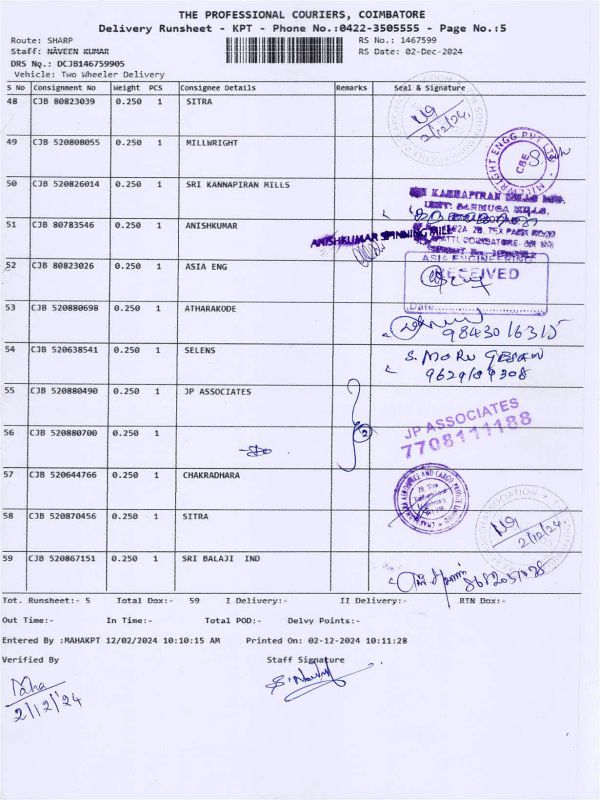 THE PROFESSIONAL COURIERS, COIMBATORE
Delivery Runsheet - KPT - Phone No.:0422-3505555 - Page No.:5
Route: SHARP RS No.: 1467599
Staff: NAVEEN KUMAR RS Date: 02-Dec-2024
DRS No.: DCJB146759905
Vehicle: Two Wheeler Delivery
S No Consignment No Weight PCS Consignee Details Remarks Seal & Signature
48 CJB 80823039 0.250 1 SITRA
2/12/24.
49 CJB 520808055 0.250 1 MILLWRIGHT
MILLWRIGHT ENGG PVT LTD
CBE
50 CJB 520826014 0.250 1 SRI KANNAPIRAN MILLS
KANNAPIRAN MILLS
51 CJB 80783546 0.250 1 ANISHKUMAR
ANISHKUMAR SPINNING MILL
52 CJB 80823026 0.250 1 ASIA ENG
ASIA ENGINEERING
RECEIVED
Date
53 CJB 520880698 0.250 1 ATHARAKODE
54 CJB 520638541 0.250 1 SELENS
55 CJB 520880490 0.250 1 JP ASSOCIATES
JP ASSOCIATES
7708111188
56 CJB 520880700 0.250 1
-do-
2
57 CJB 520644766 0.250 1 CHAKRADHARA
58 CJB 520870456 0.250 1 SITRA
2/12/24.
59 CJB 520867151 0.250 1 SRI BALAJI IND
Tot. Runsheet:- 5 Total Dox:- 59 I Delivery:- II Delivery:- RTN Dox:-
Out Time:- In Time:- Total POD:- Delvy Points:-
Entered By :MAHAKPT 12/02/2024 10:10:15 AM Printed On: 02-12-2024 10:11:28
Verified By Staff Signature
Maha
2/12/24